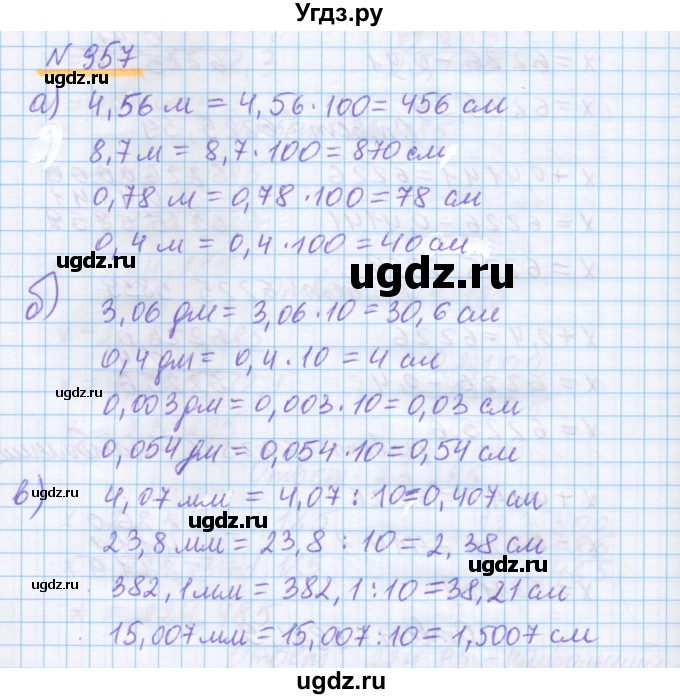 Угдз.ру
N 957
ugdz.ru
а) 4,56 м = 4,56·100 = 456 см
8,7 м = 8,7·100 = 870 см
ugdz.ru
0,78 м = 0,78·100 = 78 см
0,4 м = 0,4·100 = 40 см
ugdz.ru
ugdz.ru
б) 3,06 дм = 3,06·10 = 30,6 см
0,4 дм = 0,4·10 = 4 см
ugdz.ru
0,003 дм = 0,003·10 = 0,03 см
ugdz.ru
0,054 дм = 0,054·10 = 0,54 см
в) 4,07 мм = 4,07 : 10 = 0,407 см
ugdz.ru
ugdz.ru
23,8 мм = 23,8 : 10 = 2,38 см
ugdz.ru
382,1 мм = 382,1 : 10 = 38,21 см
ugdz.ru
15,007 мм = 15,007 : 10 = 1,5007 см
ugdz.ru